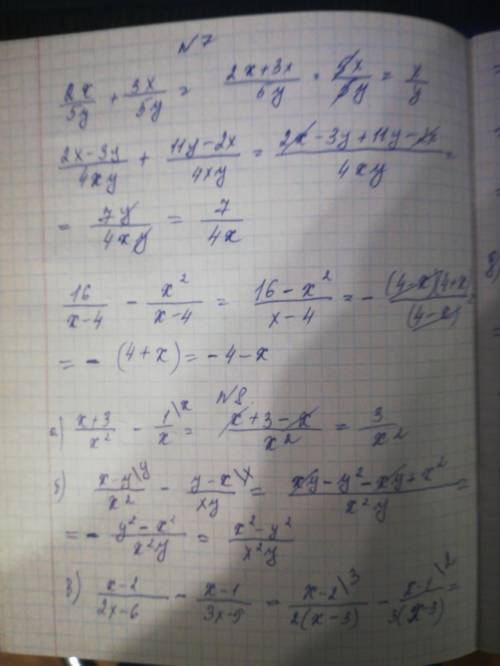 №7
2x/5y + 3x/5y = (2x+3x)/5y = 5x/5y = x/y
(2x-3y)/4xy + (11y-2x)/4xy = (2x-3y+11y-2x)/4xy =
= 7y/4xy = 7/4x
16/(x-4) - x²/(x-4) = (16-x²)/(x-4) = - (4-x)(4+x)/(4-x) =
= - (4+x) = -4-x
№8.
а) (x+3)/x² - 1\x/x = (x+3-x)/x² = 3/x²
б) (x-y)\y/x² - (y-x)\x/xy = (xy-y²-xy+x²)/x²y =
= - (y²-x²)/x²y = (x²-y²)/x²y
в) (x-2)/(2x-6) - (x-1)/(3x-9) = (x-2)\3/2(x-3) - (x-1)\2/3(x-3) =